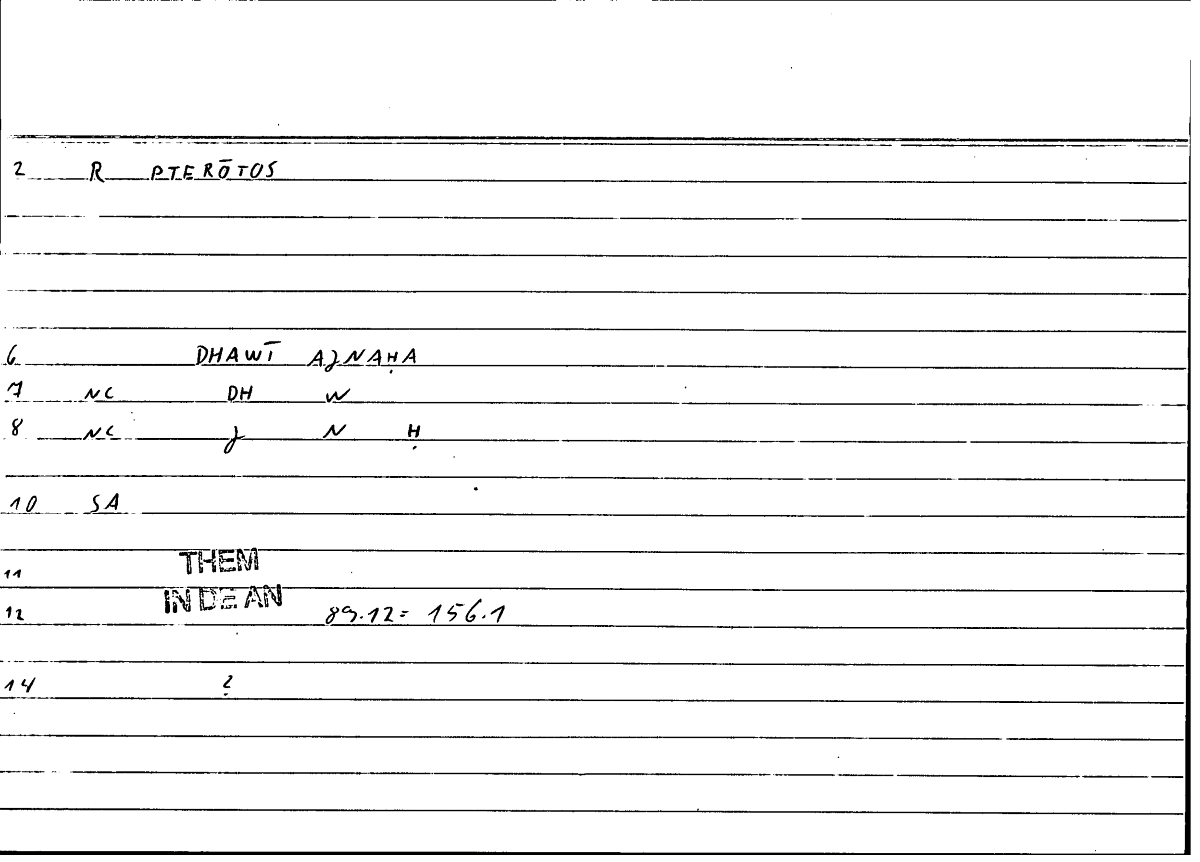 2 R PTERŌTOS
6 DHAWĪ AJNAḤA
7 NC DH W
8 NC J N Ḥ
10 SA
11 THEM
12 IN DE AN 89.12= 156.1
14 ?